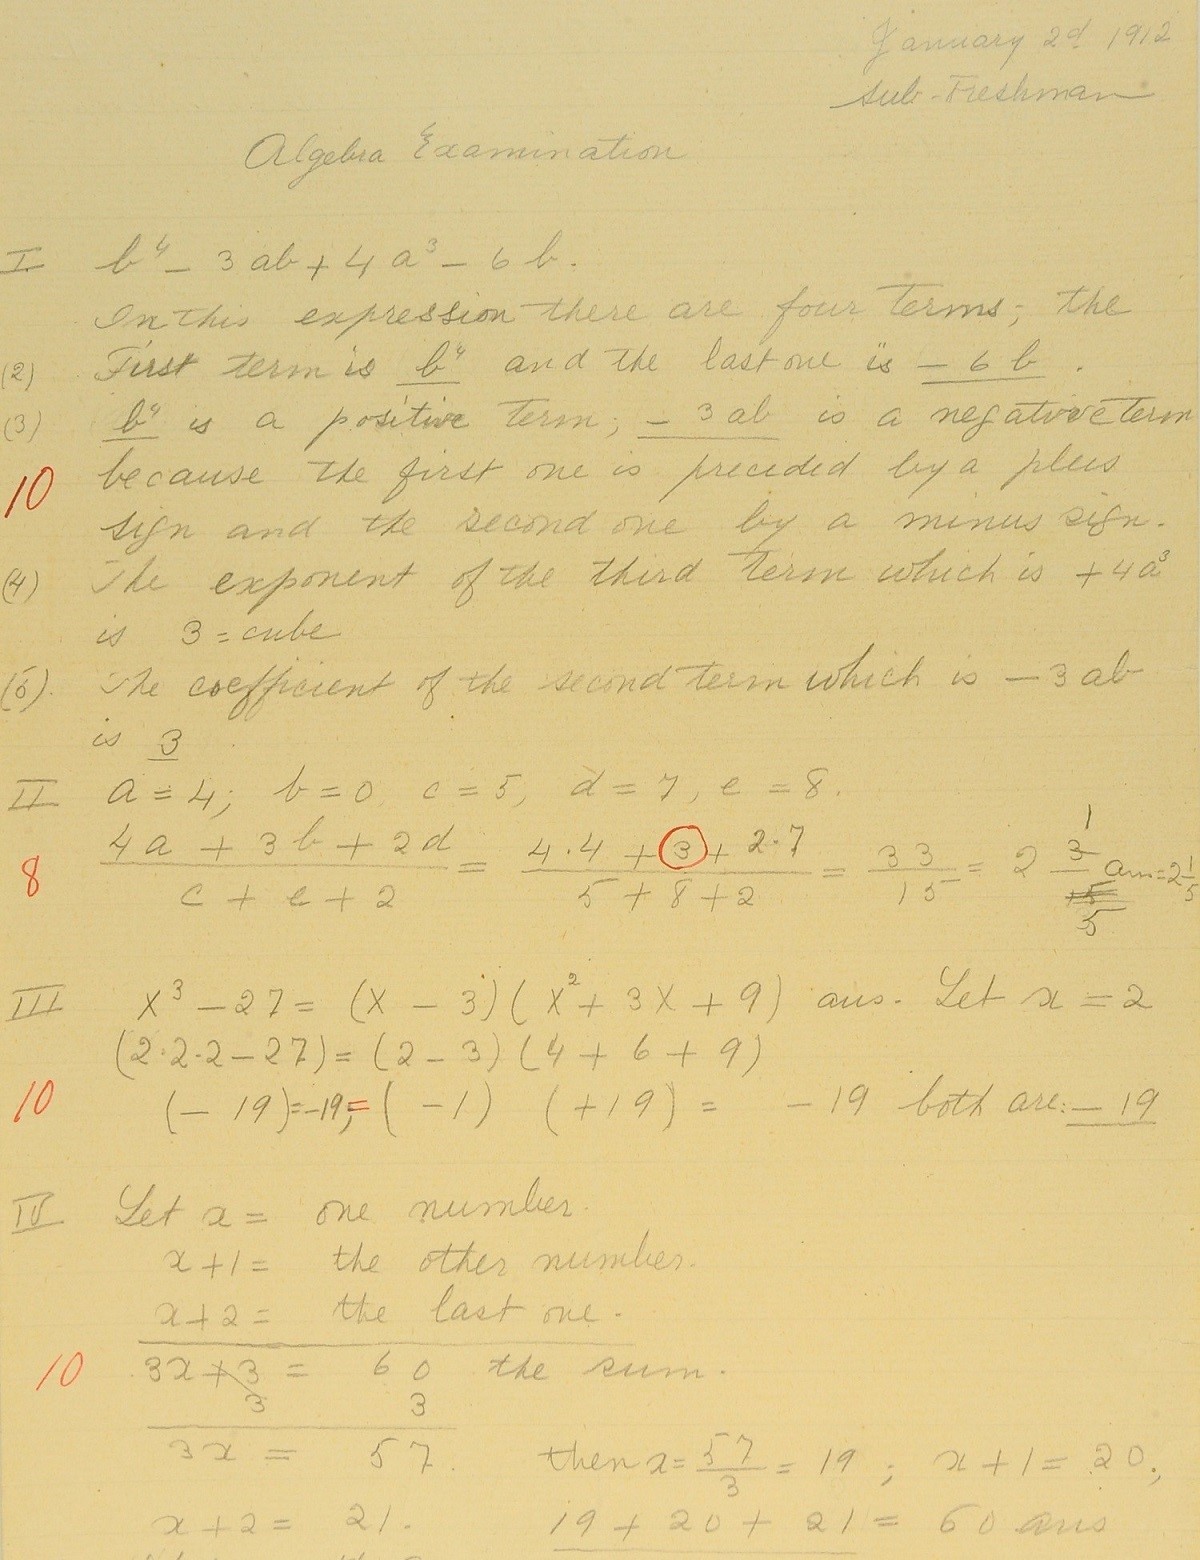 January 2d 1912
Sub-Freshman
Algebra Examination
I b⁴ - 3ab + 4a³ - 6b.
In this expression there are four terms; the
(2) First term is b⁴ and the last one is - 6b.
(3) b⁴ is a positive term; - 3ab is a negative term
10 because the first one is preceded by a plus
sign and the second one by a minus sign.
(4) The exponent of the third term which is +4a³
is 3 = cube
(5). The coefficient of the second term which is - 3ab
is 3
II a = 4; b = 0 c = 5, d = 7, e = 8.
8 (4a + 3b + 2d)/(c + e + 2) = (4·4 + 3 + 2·7)/(5 + 8 + 2) = 33/15 = 2 3/15 1/5 ans = 2 1/5
III x³ - 27 = (x - 3)(x² + 3x + 9) ans. Let x = 2
(2·2·2 - 27) = (2 - 3)(4 + 6 + 9)
10 (- 19) = -19; = (-1) (+19) = - 19 both are: - 19
IV Let x = one number.
x + 1 = the other number.
x + 2 = the last one.
10 3x + 3 = 60 the sum.
3 3
3x = 57. then x = 57/3 = 19; x + 1 = 20;
x + 2 = 21. 19 + 20 + 21 = 60 ans